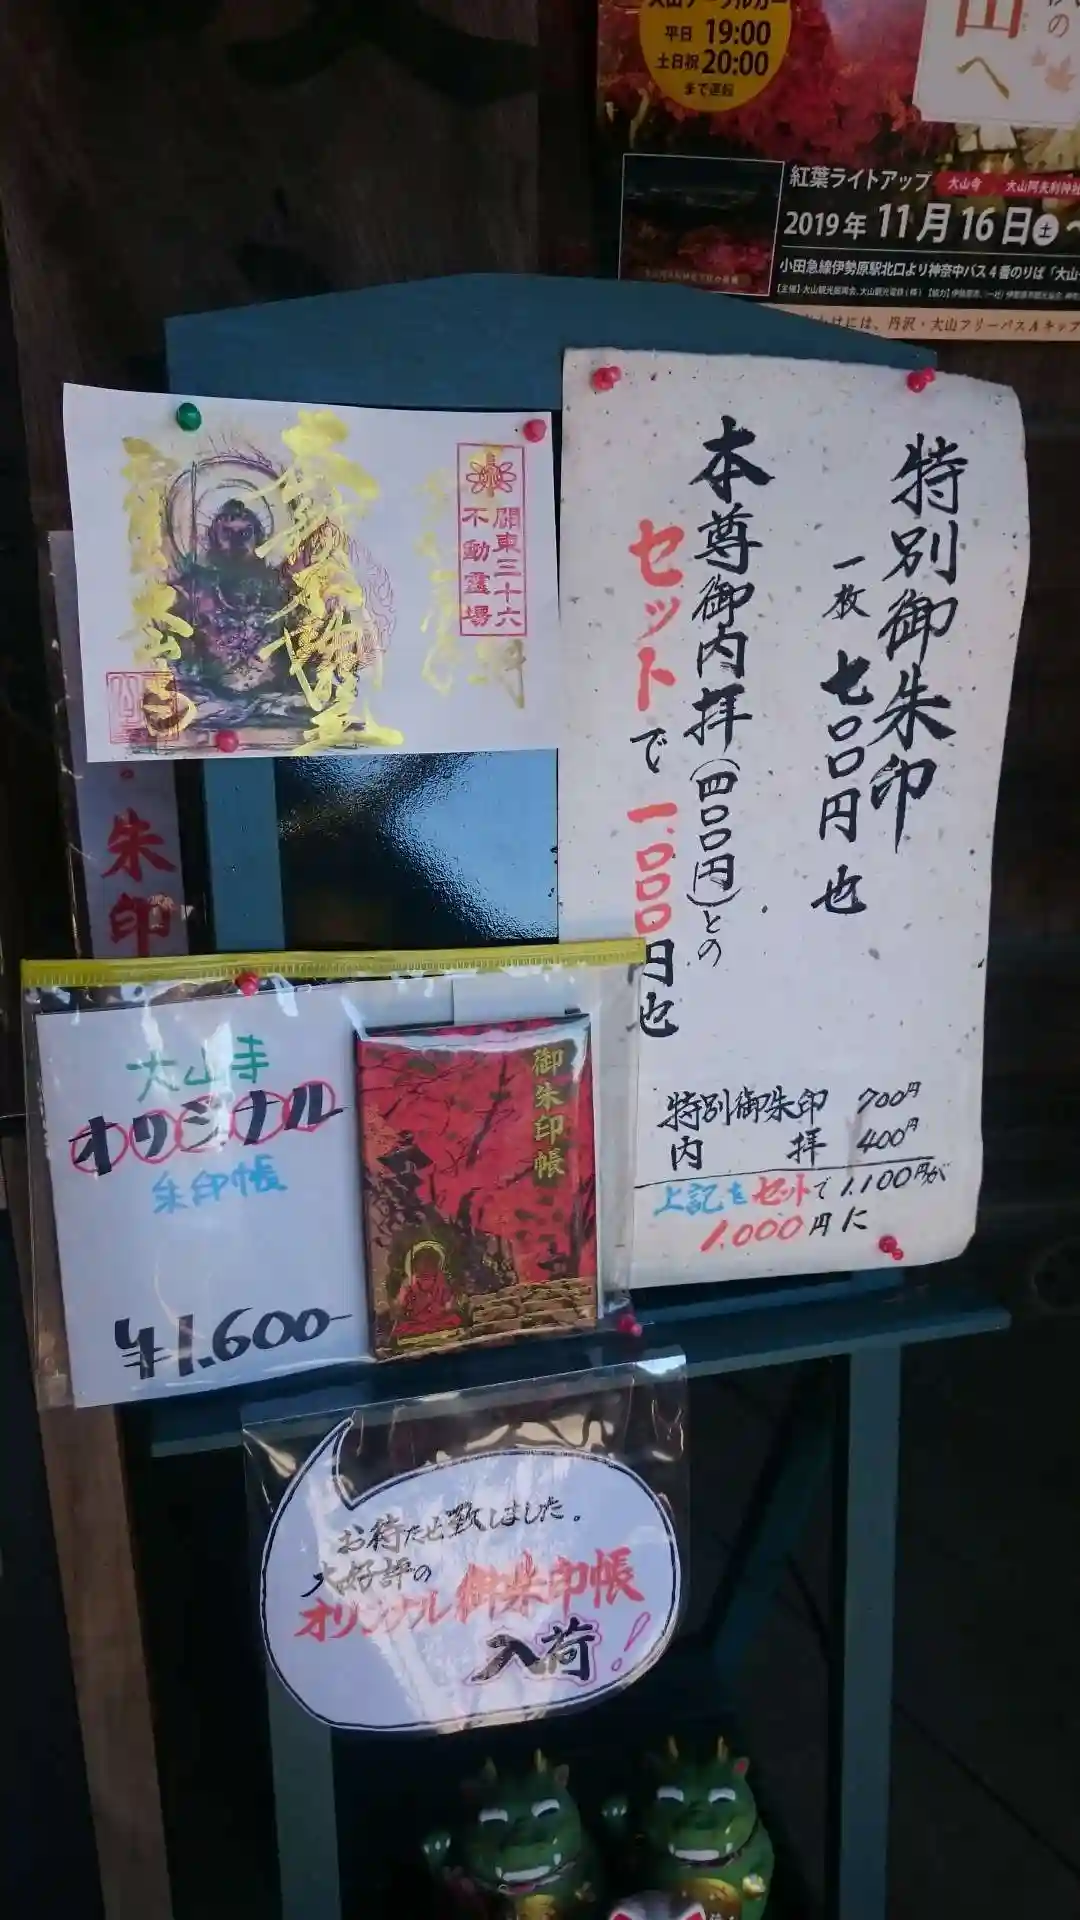 平日 19:00
土日祝 20:00
まで運転
山へ
の
紅葉ライトアップ
大山寺
大山阿夫利神社
2019年 11月16日㊏〜
小田急線伊勢原駅北口より神奈中バス4番のりば「大山
には、丹沢・大山フリーパスAキップ
関東三十六
不動霊場
朱印
特別御朱印
一枚 七〇〇円也
本尊御内拝(四〇〇円)との
セットで 一、〇〇〇円也
特別御朱印 700円
内拝 400円
上記をセットで1,100円が
1,000円に
大山寺
オリジナル
朱印帳
¥1,600-
御朱印帳
お待たせ致しました。
大好評の
オリジナル御朱印帳
入荷!